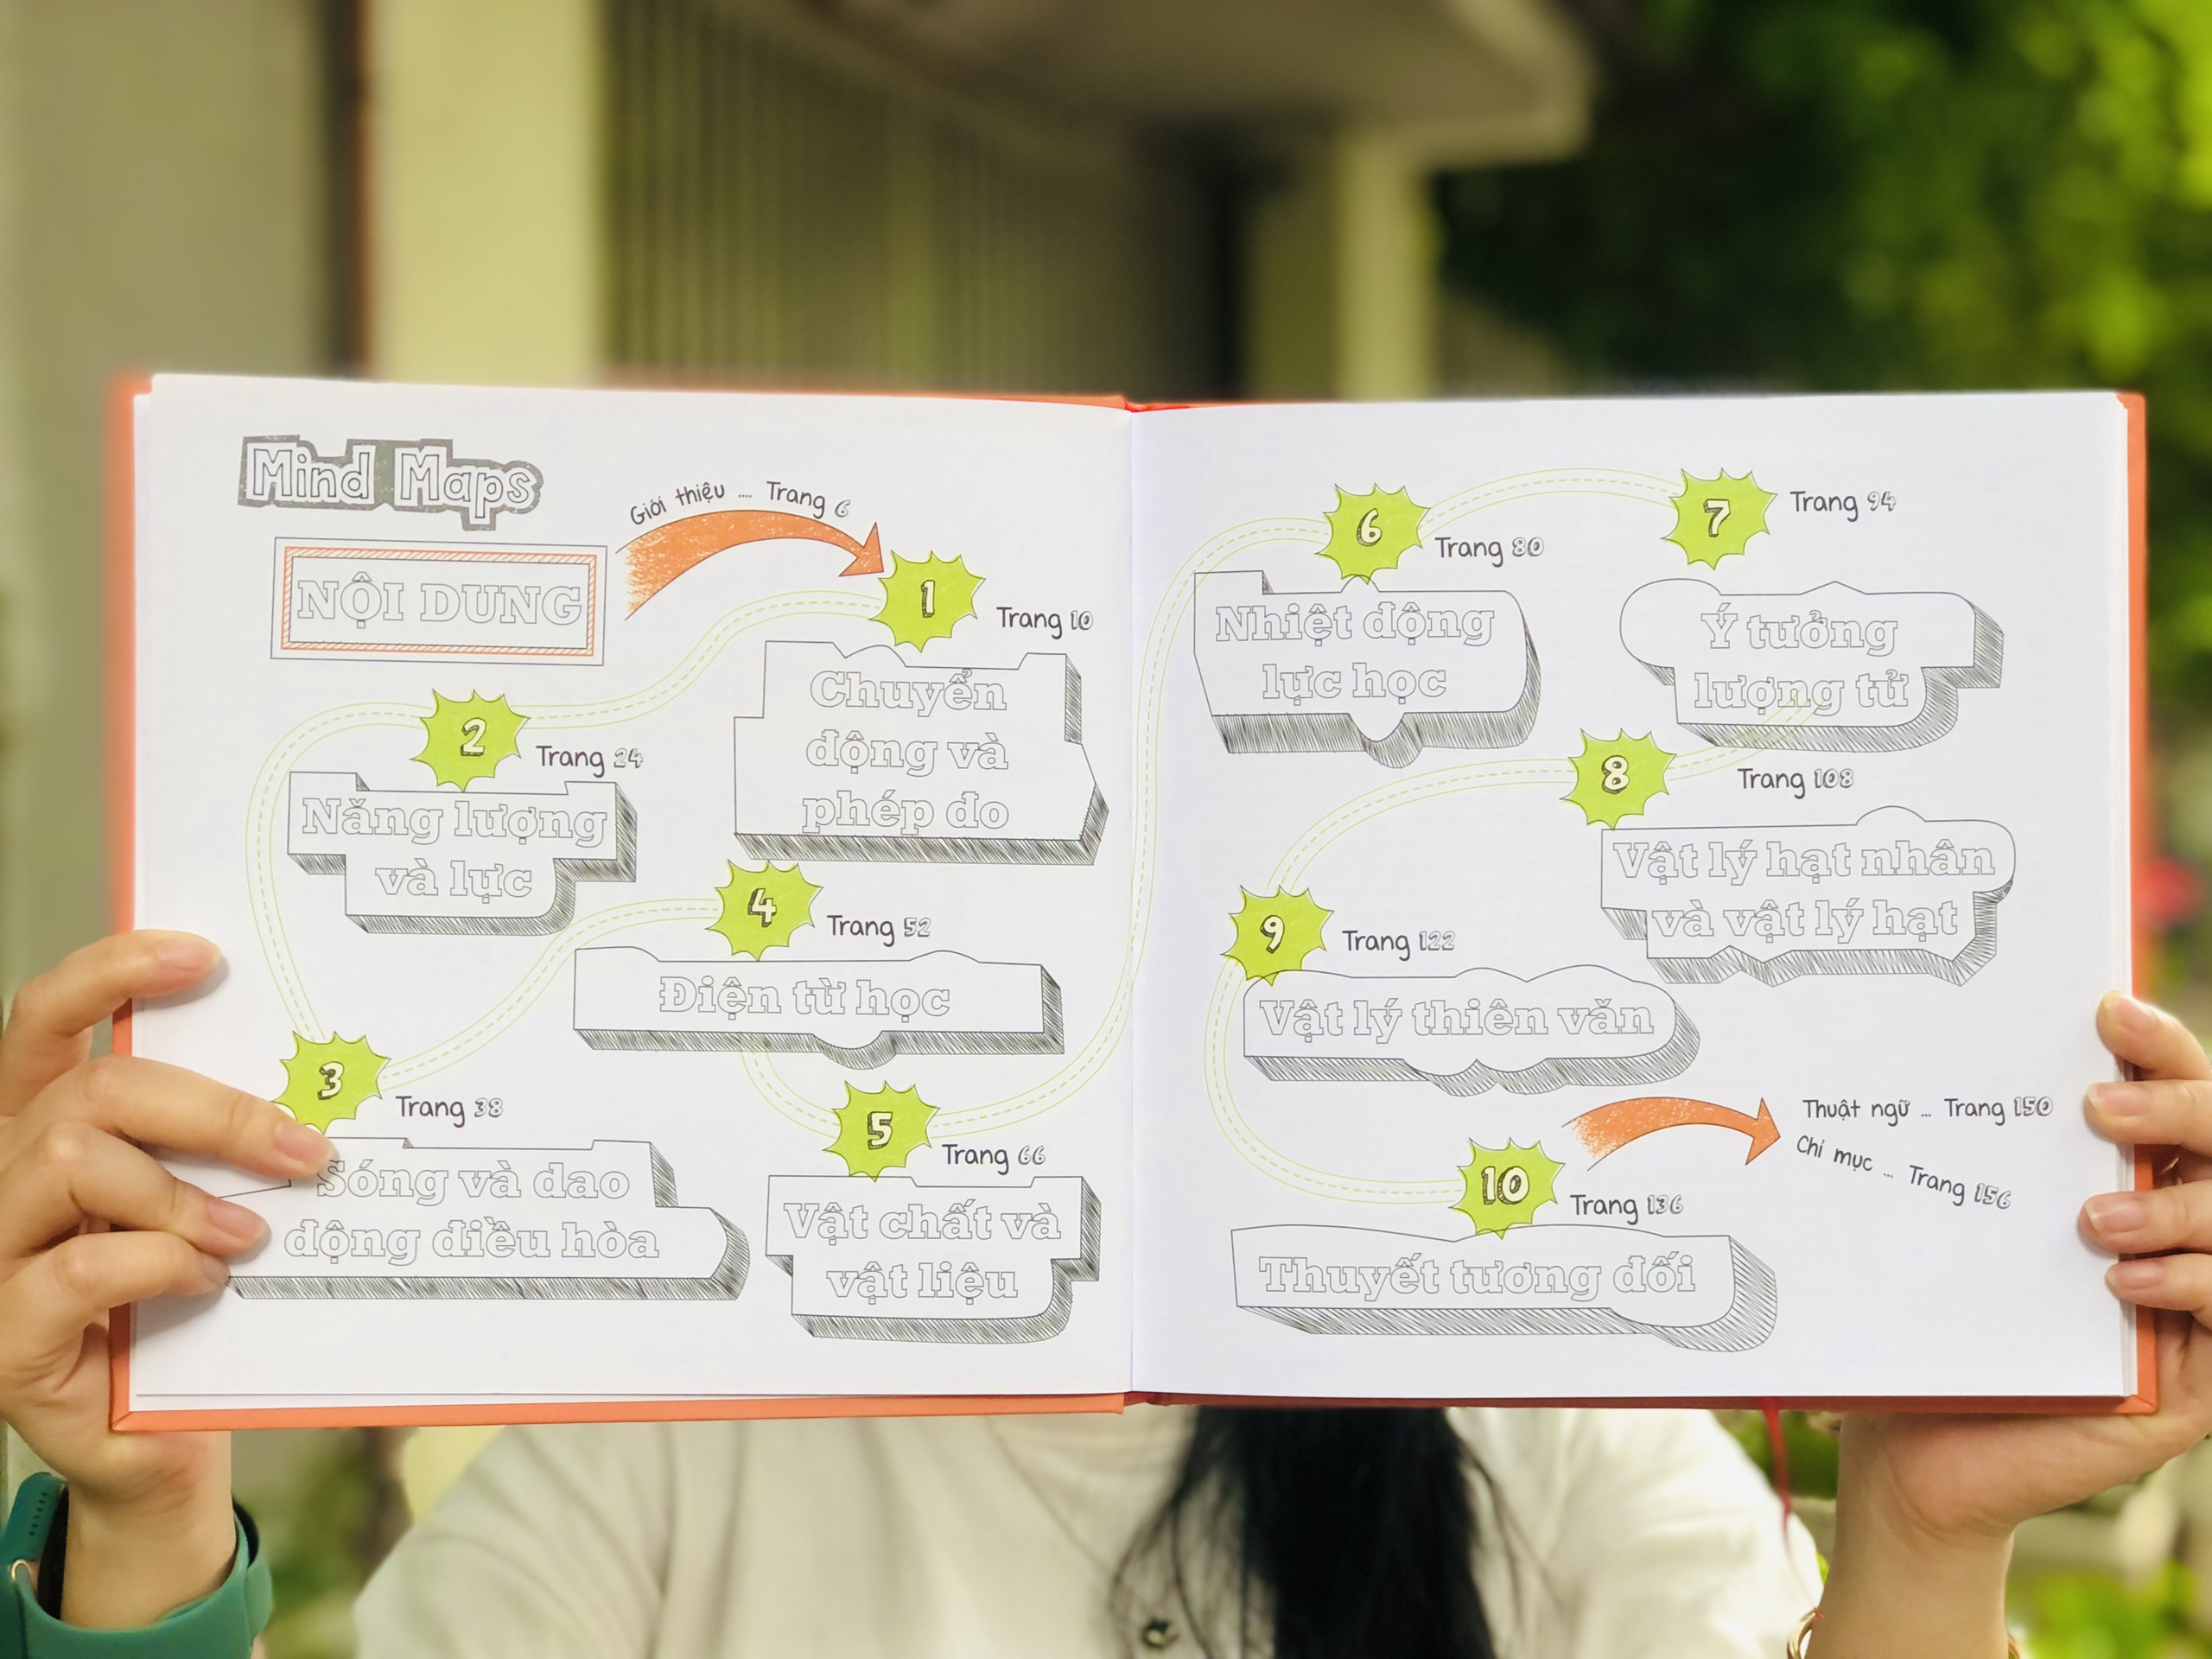 Mind Maps
NỘI DUNG
Giới thiệu .... Trang 6
1
Trang 10
Chuyển
động và
phép đo
2
Trang 24
Năng lượng
và lực
3
Trang 38
Sóng và dao
động điều hòa
4
Trang 52
Điện từ học
5
Trang 66
Vật chất và
vật liệu
6
Trang 80
Nhiệt động
lực học
7
Trang 94
Ý tưởng
lượng tử
8
Trang 108
Vật lý hạt nhân
và vật lý hạt
9
Trang 122
Vật lý thiên văn
10
Trang 136
Thuyết tương đối
Thuật ngữ ... Trang 150
Chỉ mục ... Trang 156